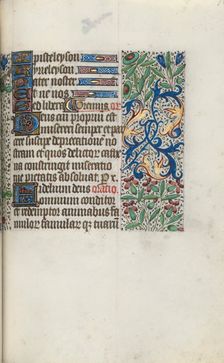 Kyrieleyson
Kyrieleyson
ater noster
ne nos
ed libera Oremus
eus cui proprium est
misereri semper et par
cere suscipe deprecationem no
stram et quos delictorum cathe
na constringit miseratio
tue pietatis absoluat. P
Fidelium deus oratio
omnium conditor
et redemptor animabus fa
mulorum famularumque tuarum